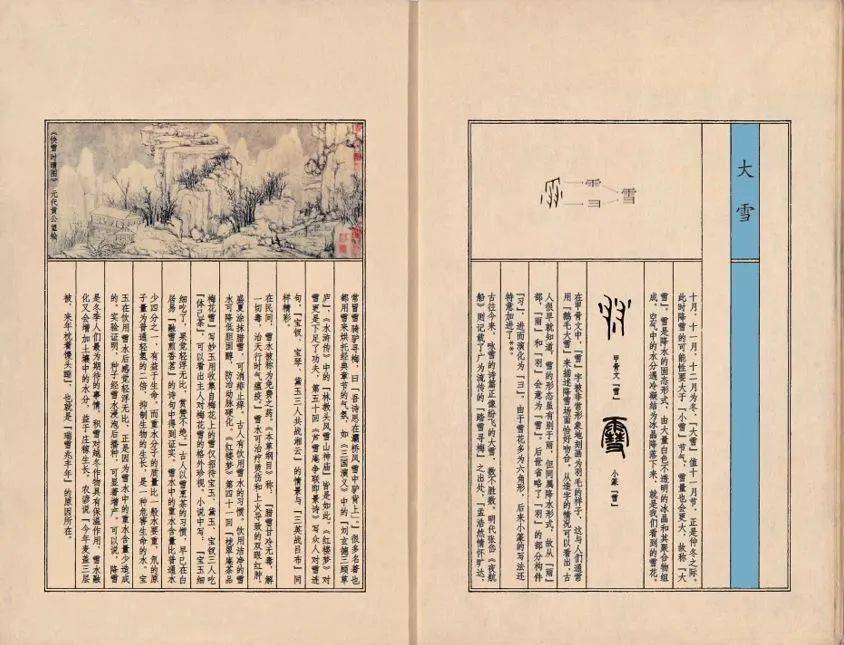 大雪
十月、十一月、十二月为冬，「大雪」值十一月节，正是仲冬之际，
此时降雪的可能性要大于「小雪」节气，雪量也会更大，故称「大
雪」。雪是降水的固态形式，由大量白色不透明的冰晶和其聚合物组
成。空气中的水分遇冷凝结为冰晶降落下来，就是我们看到的雪花。
雪
甲骨文「雪」
小篆「雪」
在甲骨文中，「雪」字被非常形象地刻画为羽毛的样子，这与人们通常
用「鹅毛大雪」来描述降雪场面恰好吻合。从造字的情况可以看出，古
人很早就知道，雪的形态虽有别于雨，但同属降水形式，故从「雨」
部，「雨」和「羽」会意为「雪」，后世省略了「羽」的部分构件
「习」，进而演化为「彐」。由于雪花多为六角形，后来小篆的写法还
特意加进了**。
古往今来，咏雪的诗篇正像纷飞的大雪，数不胜数。明代张岱《夜航
船》则记载了广为流传的「踏雪寻梅」之出处，「孟浩然情怀旷达，
常冒雪骑驴寻梅，曰「吾诗思在灞桥风雪中驴背上」。很多名著也
都用雪来烘托经典章节的气氛，如《三国演义》中的「刘玄德三顾草
庐」、《水浒传》中的「林教头风雪山神庙」皆是如此。《红楼梦》对
雪更是下足了功夫，第五十回《芦雪庵争联即景诗》写众人对雪连
句，「宝钗、宝琴、黛玉三人共战湘云」的情景与「三英战吕布」同
样精彩。
在民间，雪水被称为免费之药。《本草纲目》称，「腊雪甘冷无毒，解
一切毒，治天行时气瘟疫。」雪水可治疗烫伤和上火导致的双眼红肿，
盛夏涂抹腊雪，可消痱止痒。古人有饮用雪水的习惯，饮用洁净的雪
水可降低胆固醇，防治动脉硬化。《红楼梦》第四十一回「栊翠庵茶品
梅花雪」写妙玉用收集自梅花上的雪仅招待宝玉、黛玉、宝钗三人吃
「体己茶」，可以看出主人对梅花雪的格外珍视，小说中写，「宝玉细
细吃了，果觉轻浮无比，赏赞不绝。」古人以雪烹茶的习惯，早已在白
居易「融雪煎香茗」的诗句中得到证实。雪水中的重水含量比普通水
少四分之一，有益于生命，而重水分子的质量比一般水要重，氘的原
子量为普通轻氢的二倍，抑制生物的生长，是一种危害生命的水。宝
玉在饮用雪水后感觉轻浮无比，正是因为雪水中的重水含量少造成
的。实验证明，种子经雪水浸泡后播种，可显著增产。可以说，降雪
是冬季人们最为期待的事情，积雪对越冬作物具有保温作用，雪水融
化又会增加土壤中的水分，益于庄稼生长，农谚说「今年麦盖三层
被，来年枕着馒头睡」，也就是「瑞雪兆丰年」的原因所在。
元代黄公望绘